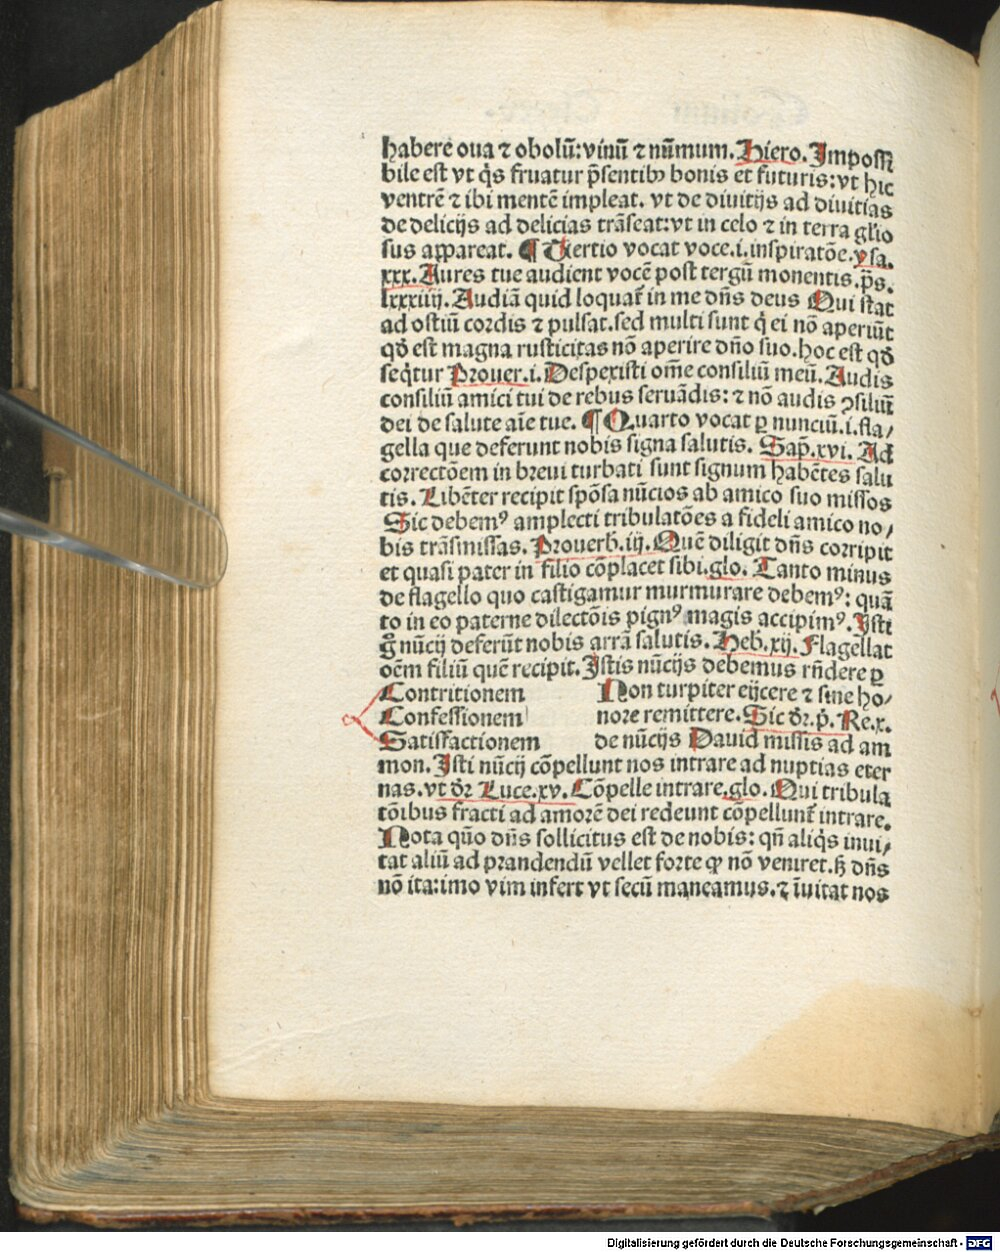 habere oua ⁊ obolū: vinū ⁊ nūmum. Hiero. Impossi
bile est vt q̇s fruatur p̄sentibꝫ bonis et futuris: vt hic
ventrē ⁊ ibi mentē impleat. vt de diuitijs ad diuitias
de delicijs ad delicias trāseat: vt in celo ⁊ in terra gl̄io
sus appareat. ¶ Tertio vocat voce .i. inspiratōe. ysa.
xxx. Aures tue audient vocē post tergū monentis. p̄s.
lxxxiiij. Audiā quid loquat᷑ in me dn̄s deus Qui stat
ad ostiū cordis ⁊ pulsat. sed multi sunt q̇ ei nō aperiūt
qd̄ est magna rusticitas nō aperire dn̄o suo. hoc est qd̄
seq̇tur Prouer. i. Despexisti om̄e consiliū meū. Audis
consiliū amici tui de rebus seruādis: ⁊ nō audis ꝯsiliū
dei de salute aīe tue. ¶ Quarto vocat ꝑ nunciū .i. fla/
gella que deferunt nobis signa salutis. Sap̄. xvi. Ad
correctōem in breui turbati sunt signum habētes salu
tis. Libēter recipit spōsa nūcios ab amico suo missos
Sic debemꝰ amplecti tribulatōes a fideli amico no/
bis trāsmissas. Prouerb. iij. Quē diligit dn̄s corripit
et quasi pater in filio cōplacet sibi. glo. Tanto minus
de flagello quo castigamur murmurare debemꝰ: quā
to in eo paterne dilectōis pignꝰ magis accipimꝰ. Isti
g̊ nūcij deferūt nobis arrā salutis. Heb. xij. Flagellat
oēm filiū quē recipit. Istis nūcijs debemus rn̄dere ꝑ
Contritionem Non turpiter eijcere ⁊ sine ho/
Confessionem nore remittere. Sic dr̄. p̄. Re. x.
Satisfactionem de nūcijs Dauid missis ad am
mon. Isti nūcij cōpellunt nos intrare ad nuptias eter
nas. vt dr̄ Luce. xv. Cōpelle intrare. glo. Qui tribula
tōibus fracti ad amorē dei redeunt cōpellunt᷑ intrare.
Nota quō dn̄s sollicitus est de nobis: qn̄ aliq̇s inui/
tat aliū ad prandendū vellet forte ꝙ nō veniret. ꝭ dn̄s
nō ita: imo vim infert vt secū maneamus. ⁊ īuitat nos
Digitalisierung gefördert durch die Deutsche Forschungsgemeinschaft - DFG